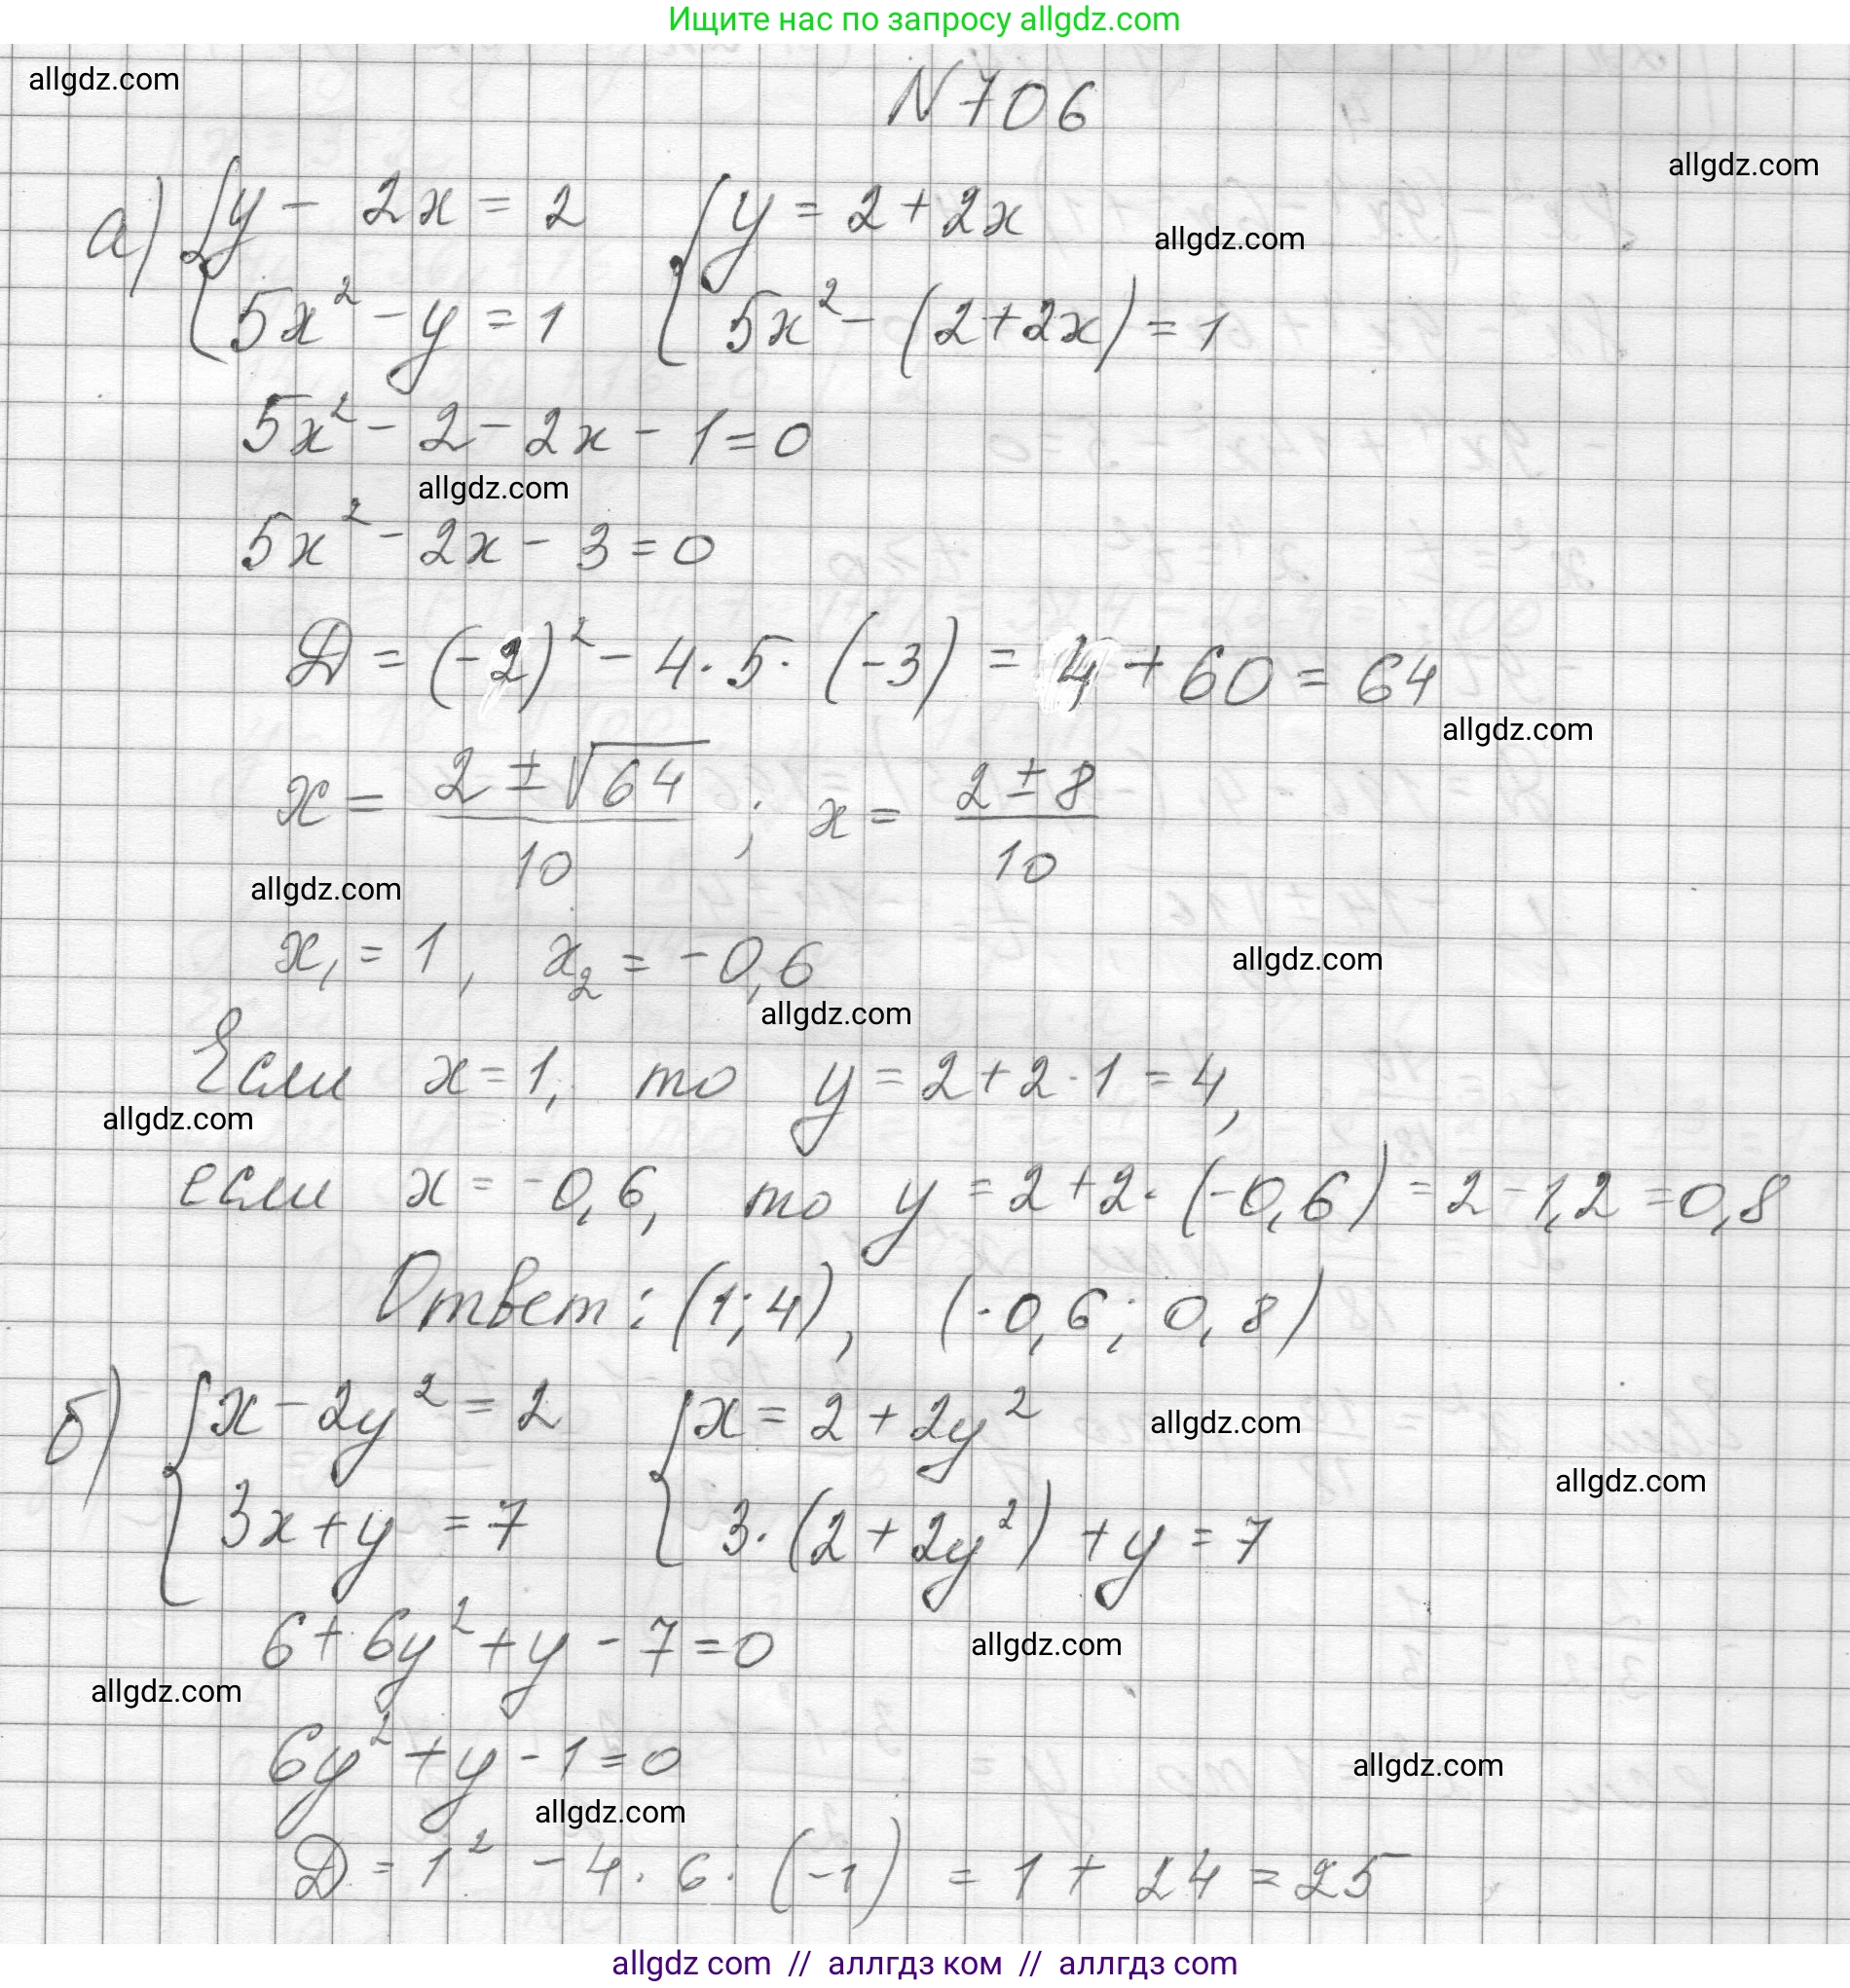 Ищите нас по запросу allgdz.com
allgdz.com
N 706
allgdz.com
а) { y - 2x = 2 { y = 2 + 2x
allgdz.com
5x² - y = 1 5x² - (2+2x) = 1
5x² - 2 - 2x - 1 = 0
allgdz.com
5x² - 2x - 3 = 0
D = (-2)² - 4·5·(-3) = 4 + 60 = 64
allgdz.com
x = (2 ± √64)/10 ; x = (2 ± 8)/10
allgdz.com
x₁ = 1, x₂ = -0,6
allgdz.com
allgdz.com
Если x = 1, то y = 2 + 2·1 = 4,
allgdz.com
если x = -0,6, то y = 2 + 2·(-0,6) = 2 - 1,2 = 0,8
Ответ: (1; 4), (-0,6; 0,8)
б) { x - 2y² = 2 { x = 2 + 2y²
allgdz.com
allgdz.com
3x + y = 7 3·(2 + 2y²) + y = 7
6 + 6y² + y - 7 = 0
allgdz.com
allgdz.com
6y² + y - 1 = 0
allgdz.com
allgdz.com
D = 1² - 4·6·(-1) = 1 + 24 = 25
allgdz com // аллгдз ком // аллгдз com